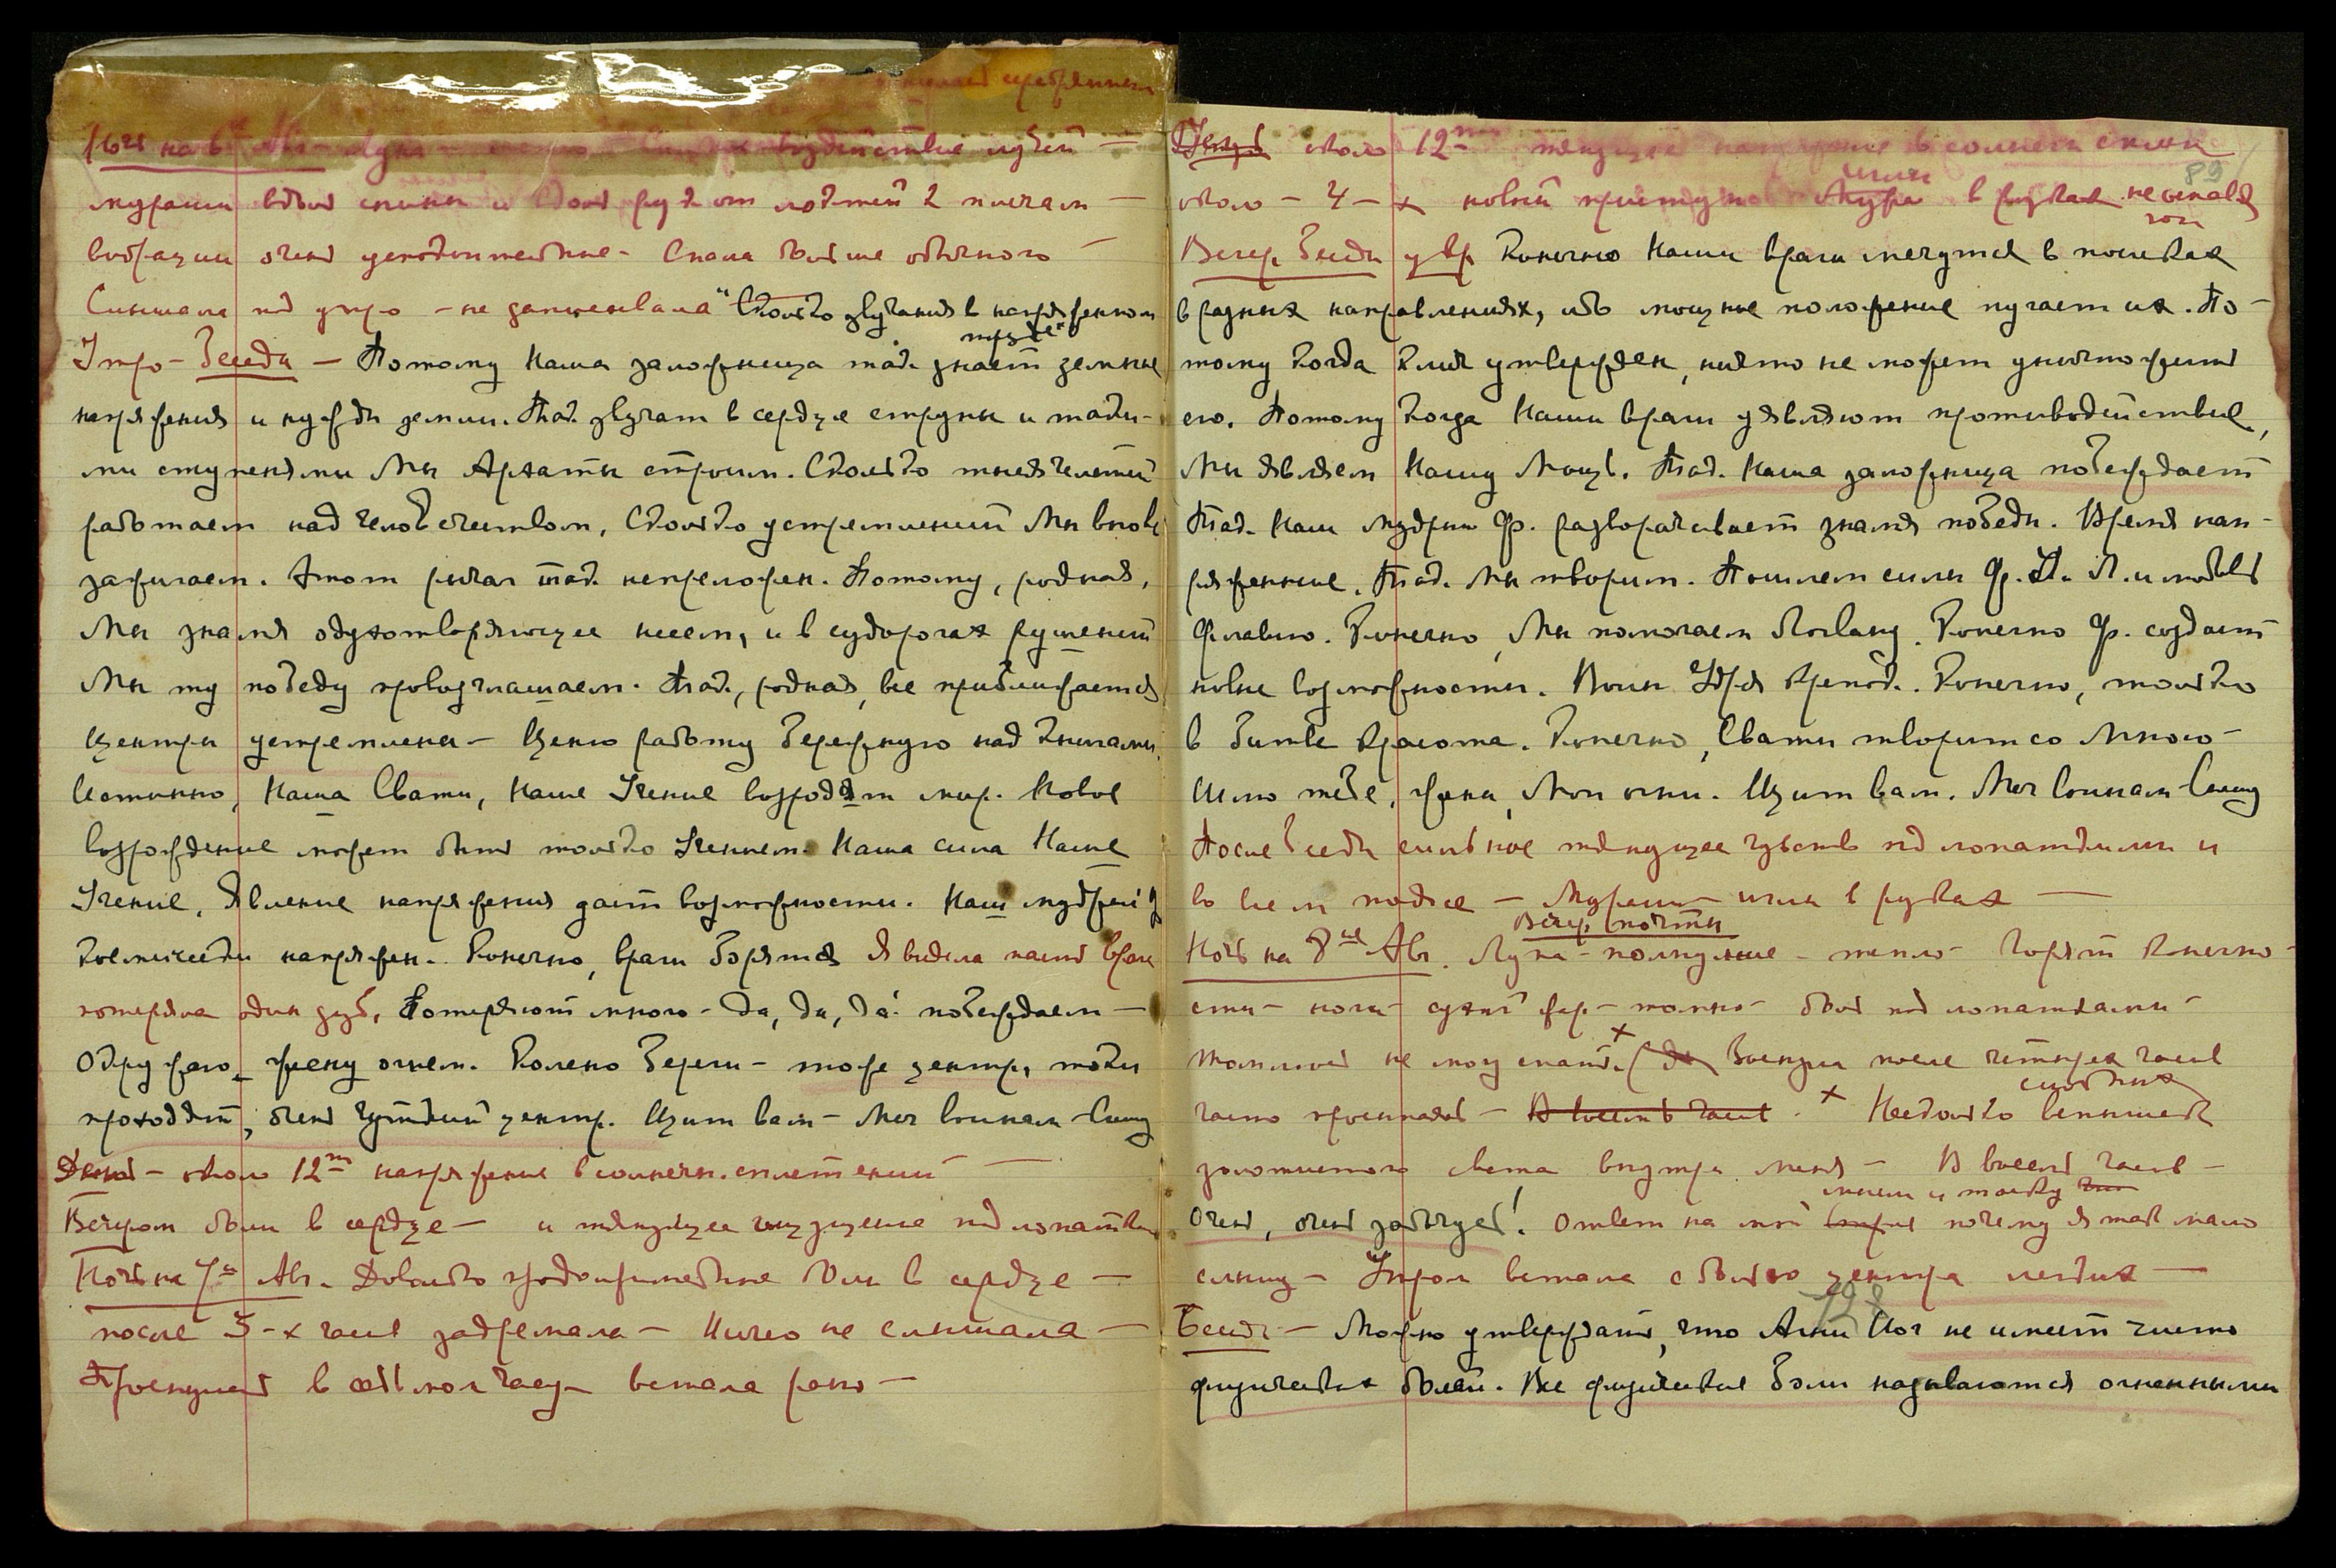 серебряном
Ночь на 6е Авг. воздействие лучей —
мураши вдоль спины и вдоль рук от локтей к плечам —
вибрации очень успокоительные - Спала больше обычного —
Слышала под утро - не записывала "Столько звучания в напряженном
труде"
Утро - Беседы — Потому Наша заложница так знает земные
напряжения и нужды земли. Так звучат в сердце струны и таки-
ми ступенями Мы Архаты строим. Столько тысячелетий
работаем над человечеством, Столько устремлений Мы вновь
зажигаем. Этот рычаг так непреложен. Потому, родная,
Мы знамя одухотворяющее несем, и в судорогах рушений
Мы ту победу провозглашаем. Так, родная, все приближается
Центры устремлены - Ценю работу бережную над книгами.
Истинно, Наша Свати, Наше Учение возродят мир. Новое
возрождение может быть только Учением. Наша сила Наше
Учение. Явление напряжения дает возможности. Наш мудрый Ф
космически напряжен. Конечно, враги борятся Я видела пасть врага
потеряла один зуб. Потеряют много - Да, да, да! побеждаем —
Окружаю жену огнем. Колено береги - тоже центр, токи
проходят, очень чуткий центр. Щит вам - Меч воинам Слышу
День - около 12ти напряжение в солнечн. сплетений —
Вечером боли в сердце — и тянущее ощущение под лопатками
Ночь на 7е Авг. Довольно продолжительные боли в сердце —
после 3-х часов задремала — Ничего не слышала —
Проснулась в седьмом часу встала рано —
День около 12ти тянущее напряжение в солнечн. сплет.
89
около - 4 - х новый приступ иглы в руках не спала
Вечер Беседы утвр Конечно Наши враги мечутся в поисках
в разных направлениях, ибо мощные положение пугает их. По-
тому когда Ключ утвержден, никто не может уничтожить
его. Потому когда Наши враги уявляют противодействие,
Мы являем Нашу Мощь. Так Наша заложница побеждает
Так Наш мудрый Ф. разворачивает знамя победы. Время нап-
ряженные. Так Мы творим. Пошлем силы Ф. Л. и любовь
Флавию. Конечно, Мы помогаем Логвану. Конечно Ф. создаст
новые возможности. Воин Удрая крепок. Конечно, только
в битве красота. Конечно, Свати творит со Мною —
Шлю тебе, жена, Мои огни. Щит вам. Меч воинам Слышу
После беседы сильное тянущее чувство под лопатками и
во всем поясе — Мураши - иглы в руках —
Вечер, почти
Ночь на 8е Авг. Луна - полнолуние - тепло - Горят конечно-
сти - ноги - сухой жар - томно - боль под лопатками —
не могу спать. х Заснула после четырех часов
часто просыпаясь — В восемь часов. х Несколько вспышек
снопных
золотистого света внутри меня — В восемь часов —
мысль и тоску
Очень, очень зазвучь! Ответ на мой вопрос почему я так мало
слышу — Утром встала с болью центра легких —
198
Беседы — Можно утверждать, что Агни Йог не имеет чисто
физических болей. Все физические боли называются огненными